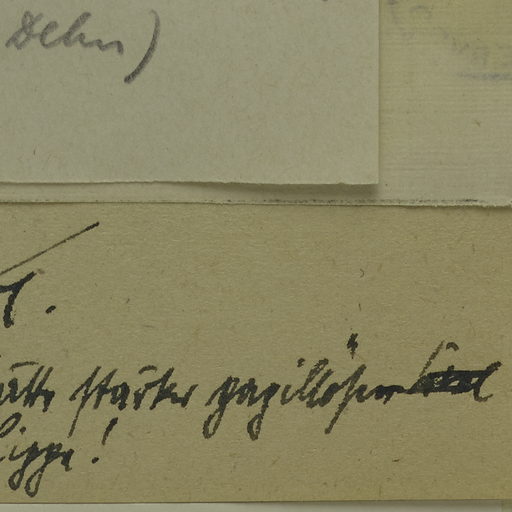 Dehn)
T.
ätte stärker papillösen
Lippe!